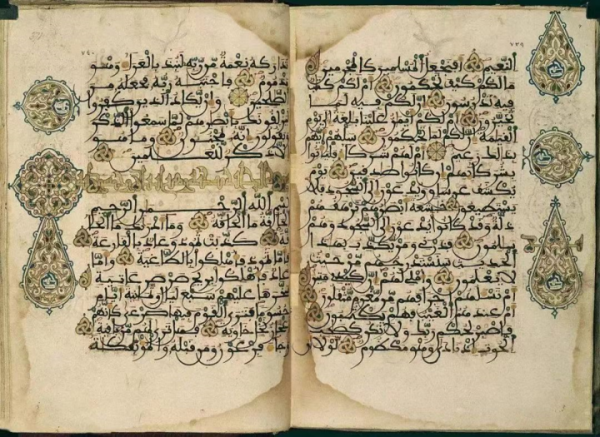 ٧٣٩
النعيم أفنجعل المسلمين كالمجرمين
ما لكم كيف تحكمون أم لكم كتب
فيه تدرسون إن لكم فيه لما
تخيرون أم لكم أيمن علينا بلغة إلى يوم
القيمة إن لكم لما تحكمون سلهم أيهم
بذلك زعيم أم لهم شركاء فليأتوا
بشركائهم إن كانوا صدقين يوم
يكشف عن ساق ويدعون إلى السجود فلا
يستطيعون خشعة أبصرهم ترهقهم
ذلة وقد كانوا يدعون إلى السجود وهم
سلمون فذرني ومن يكذب بهذا
الحديث سنستدرجهم من حيث
لا يعلمون وأملي لهم إن كيدي متين
أم تسلهم أجرا فهم من مغرم مثقلون
أم عندهم الغيب فهم يكتبون
فاصبر لحكم ربك ولا تكن كصحب
الحوت إذ نادى وهو مكظوم لولا أن
٧٤٠
تدركه نعمة من ربه لنبذ بالعراء وهو
مذموم فاجتبه ربه فجعله من
الصلحين وإن يكاد الذين كفروا
ليزلقونك بأبصرهم لما سمعوا الذكر
ويقولون إنه لمجنون وما هو
إلا ذكر للعلمين
بسم الله الرحمن الرحيم
الحاقة ما الحاقة وما أدريك ما الحا
قة كذبت ثمود وعاد بالقارعة
فأما ثمود فأهلكوا بالطاغية وأما
عاد فأهلكوا بريح صرصر عاتية
سخرها عليهم سبع ليال وثمنية أيام
حسوما فترى القوم فيها صرعى كأنهم
أعجاز نخل خاوية فهل ترى لهم من باقية
وجاء فرعون ومن قبله والمؤتفكة